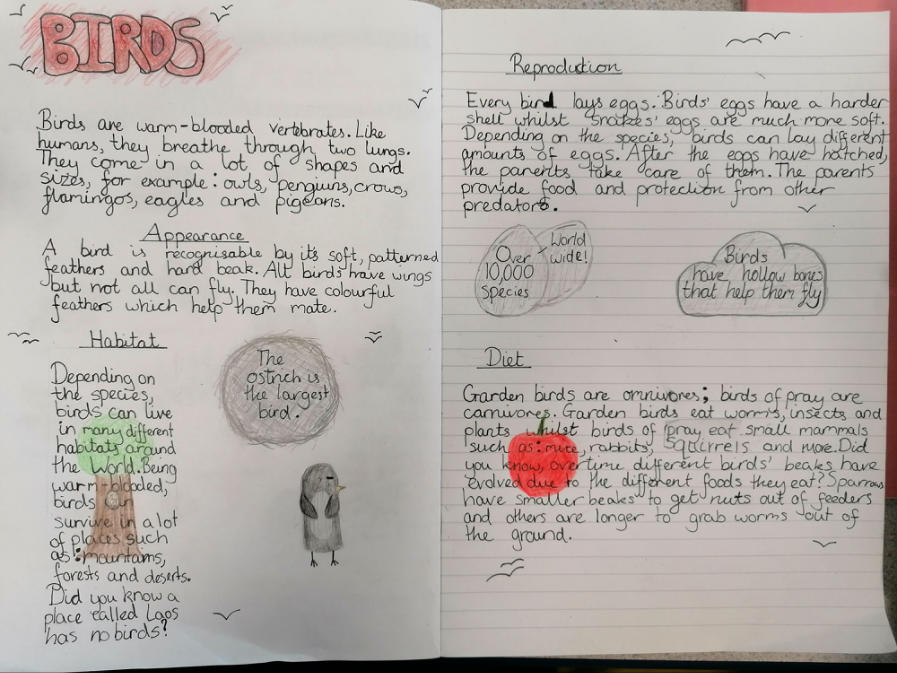 BIRDS
Birds are warm-blooded vertebrates. Like
humans, they breathe through two lungs.
They come in a lot of shapes and
sizes, for example: owls, penguins, crows,
flamingos, eagles and pigeons.
Appearance
A bird is recognisable by it's soft, patterned
feathers and hard beak. All birds have wings
but not all can fly. They have colourful
feathers which help them mate.
Habitat
Depending on
the species,
birds can live
in many different
habitats around
the world. Being
warm-blooded,
birds can
survive in a lot
of places such
as: mountains,
forests and deserts.
Did you know a
place called Laos
has no birds?
The
ostrich is
the largest
bird.
Reproduction
Every bird lays eggs. Birds' eggs have a harder
shell whilst snakes' eggs are much more soft.
Depending on the species, birds can lay different
amounts of eggs. After the eggs have hatched,
the parents take care of them. The parents
provide food and protection from other
predators.
Over
10,000
species
World
wide!
Birds
have hollow bones
that help them fly
Diet
Garden birds are omnivores; birds of pray are
carnivores. Garden birds eat worms, insects and
plants whilst birds of pray eat small mammals
such as: mice, rabbits, squirrels and more. Did
you know, overtime different birds' beaks have
evolved due to the different foods they eat? Sparrows
have smaller beaks to get nuts out of feeders
and others are longer to grab worms out of
the ground.